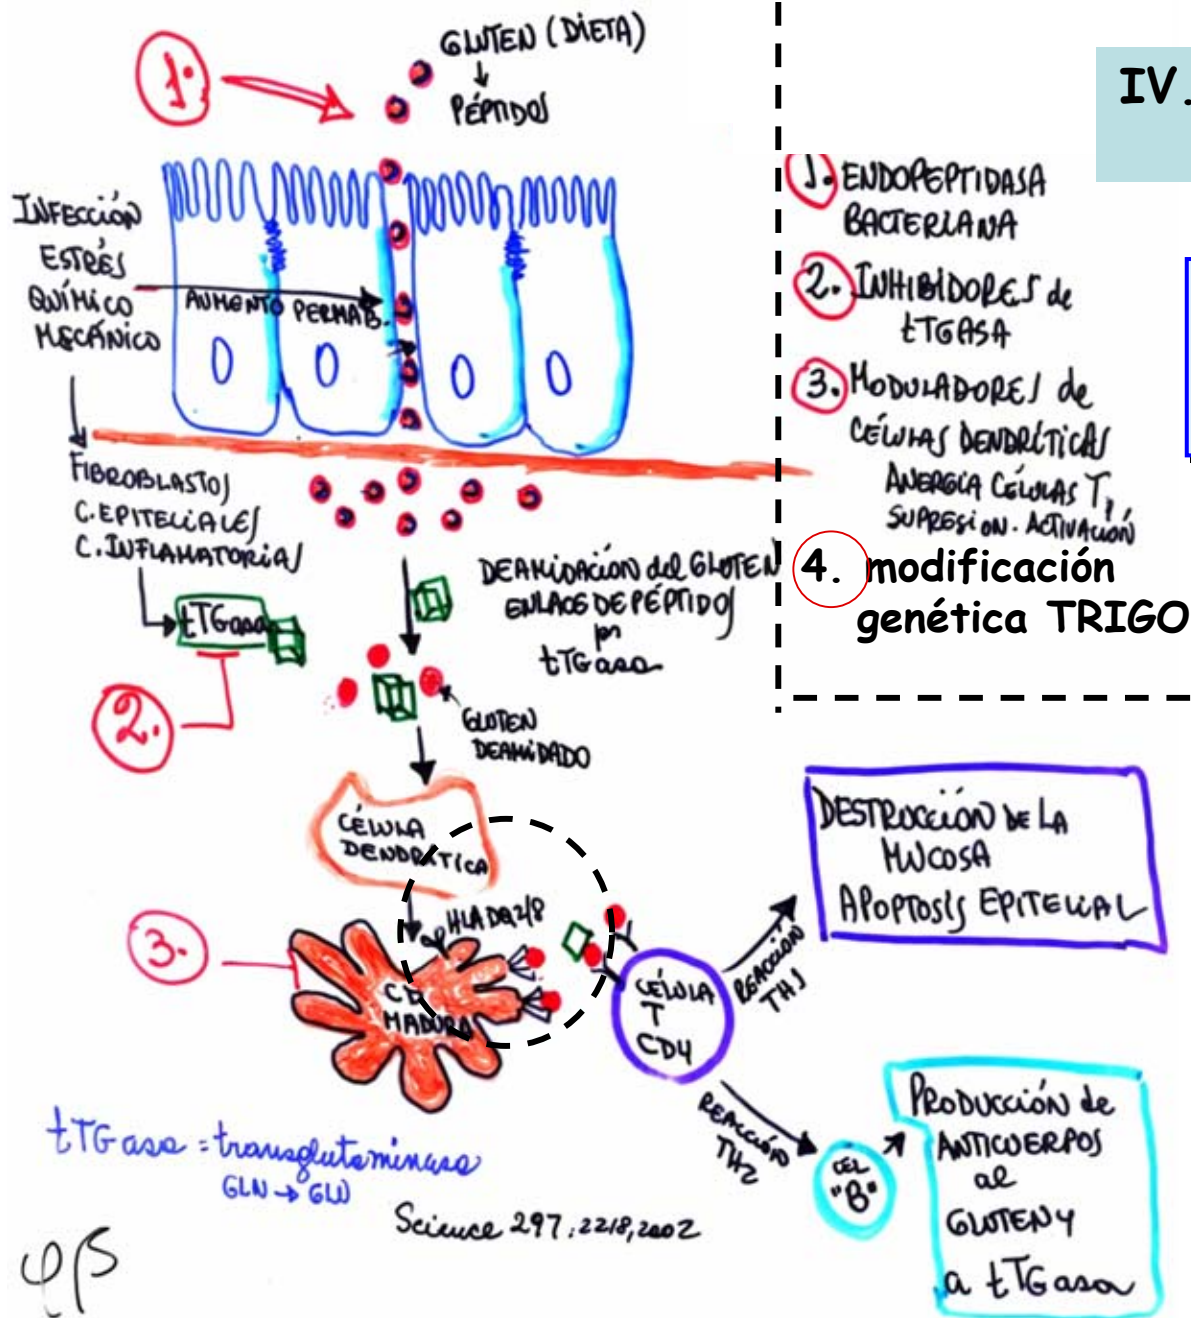 1.
GLUTEN (DIETA)
↓
PÉPTIDOS
INFECCIÓN
ESTRÉS
QUÍMICO
MECÁNICO
AUMENTO PERMEAB.
FIBROBLASTOS
C. EPITELIALES
C. INFLAMATORIAS
tTGasa
2.
DEAMIDACIÓN del GLUTEN
ENLACE DE PÉPTIDOS
por
tTGasa
GLUTEN
DEAMIDADO
CÉLULA
DENDRÍTICA
HLADQ2/8
3.
CD
MADURA
CÉLULA
T
CD4
REACCIÓN
TH1
DESTRUCCIÓN DE LA
MUCOSA
APOPTOSIS EPITELIAL
REACCIÓN
TH2
CEL
"B"
PRODUCCIÓN de
ANTICUERPOS
al
GLUTEN Y
a tTGasa
tTGasa = transglutaminasa
GLN → GLU
Science 297:2218,2002
IV.
1. ENDOPEPTIDASA
BACTERIANA
2. INHIBIDORES de
tTGASA
3. MODULADORES de
CÉLULAS DENDRÍTICAS
ANERGIA CÉLULAS T,
SUPRESION. ACTIVACIÓN
4. modificación
genética TRIGO